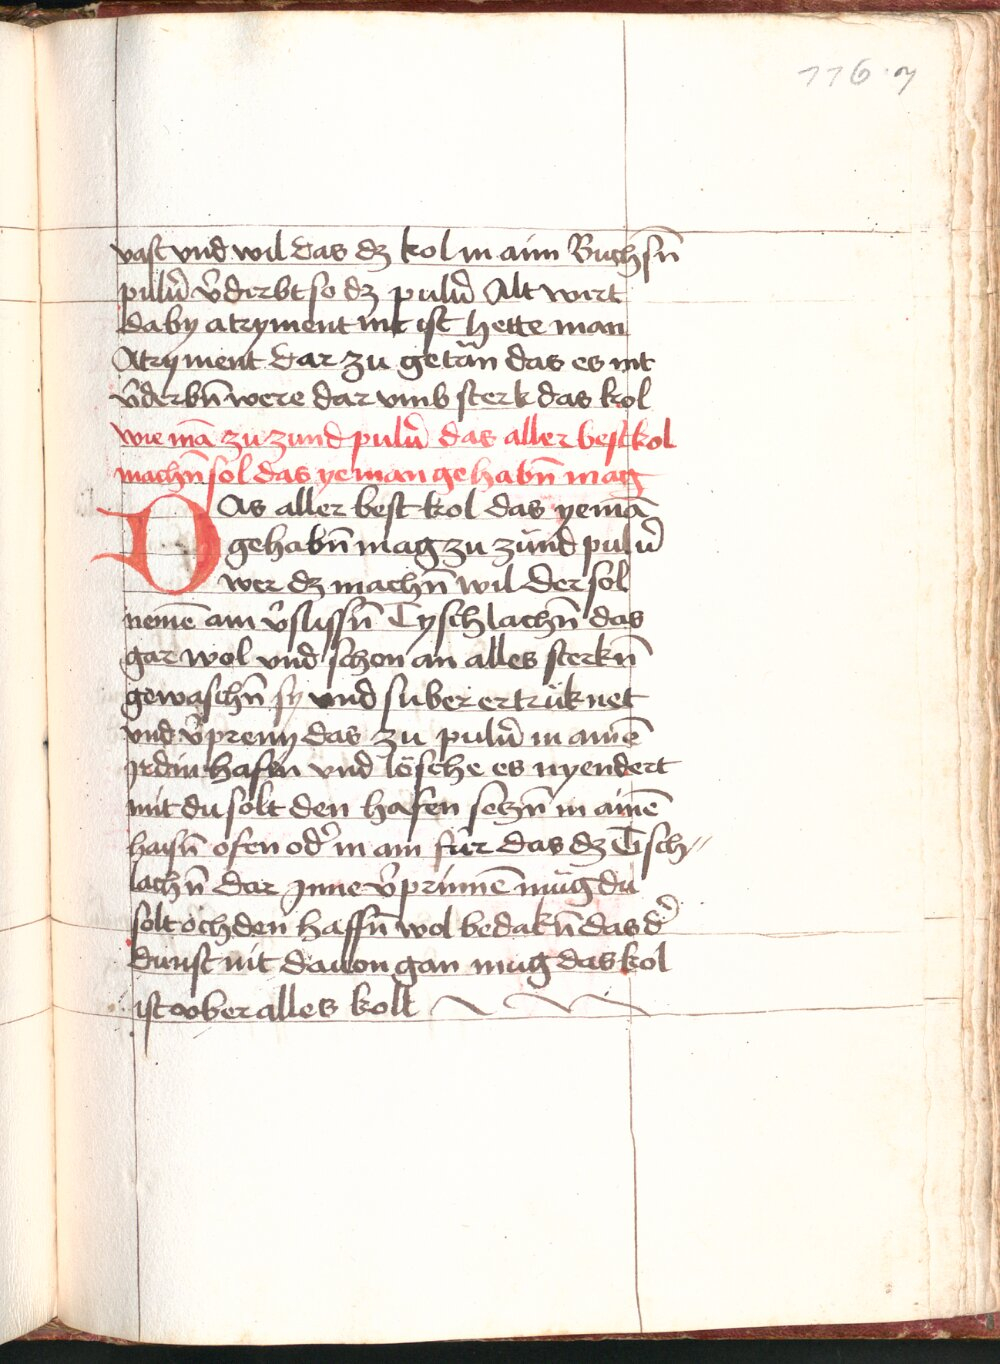 116·r
vast vnd wil das dz kol in aim Buchsn̄
pulu̾ v̾dirbt so dz pulu̾ Alt wirt
daby atryment nit ist hette man
Atryment dar zu getän das es nit
v̾derbn̄ were dar vmb sterk das kol
wie mā zu zund pulu̾ das aller best kol
machn̄ sol das yeman gehabn̄ mag
DAs aller best kol das yemā
gehabn̄ mag zu zünd pulu̾
wer dz machn̄ wil der sol
nemē ain v̾slissn̄ Tyschlachn̄ das
gar wol vnd schon an alles sterkn̄
gewaschn̄ sy vnd suber ertrüknet
vnd v̾prenn das zu pulu̾ in ainē
Irdin hafen vnd lösche es nyendert
mit du solt den hafen setzn̄ in ainē
haisn̄ ofen od̾ in ain für das dz Tisch〃
lachn̄ dar Inne v̾prinnē müg du
solt och den haffn̄ wol bedakn̄ das d̾
dunst nit dauon gan mug das kol
ist vber alles koll